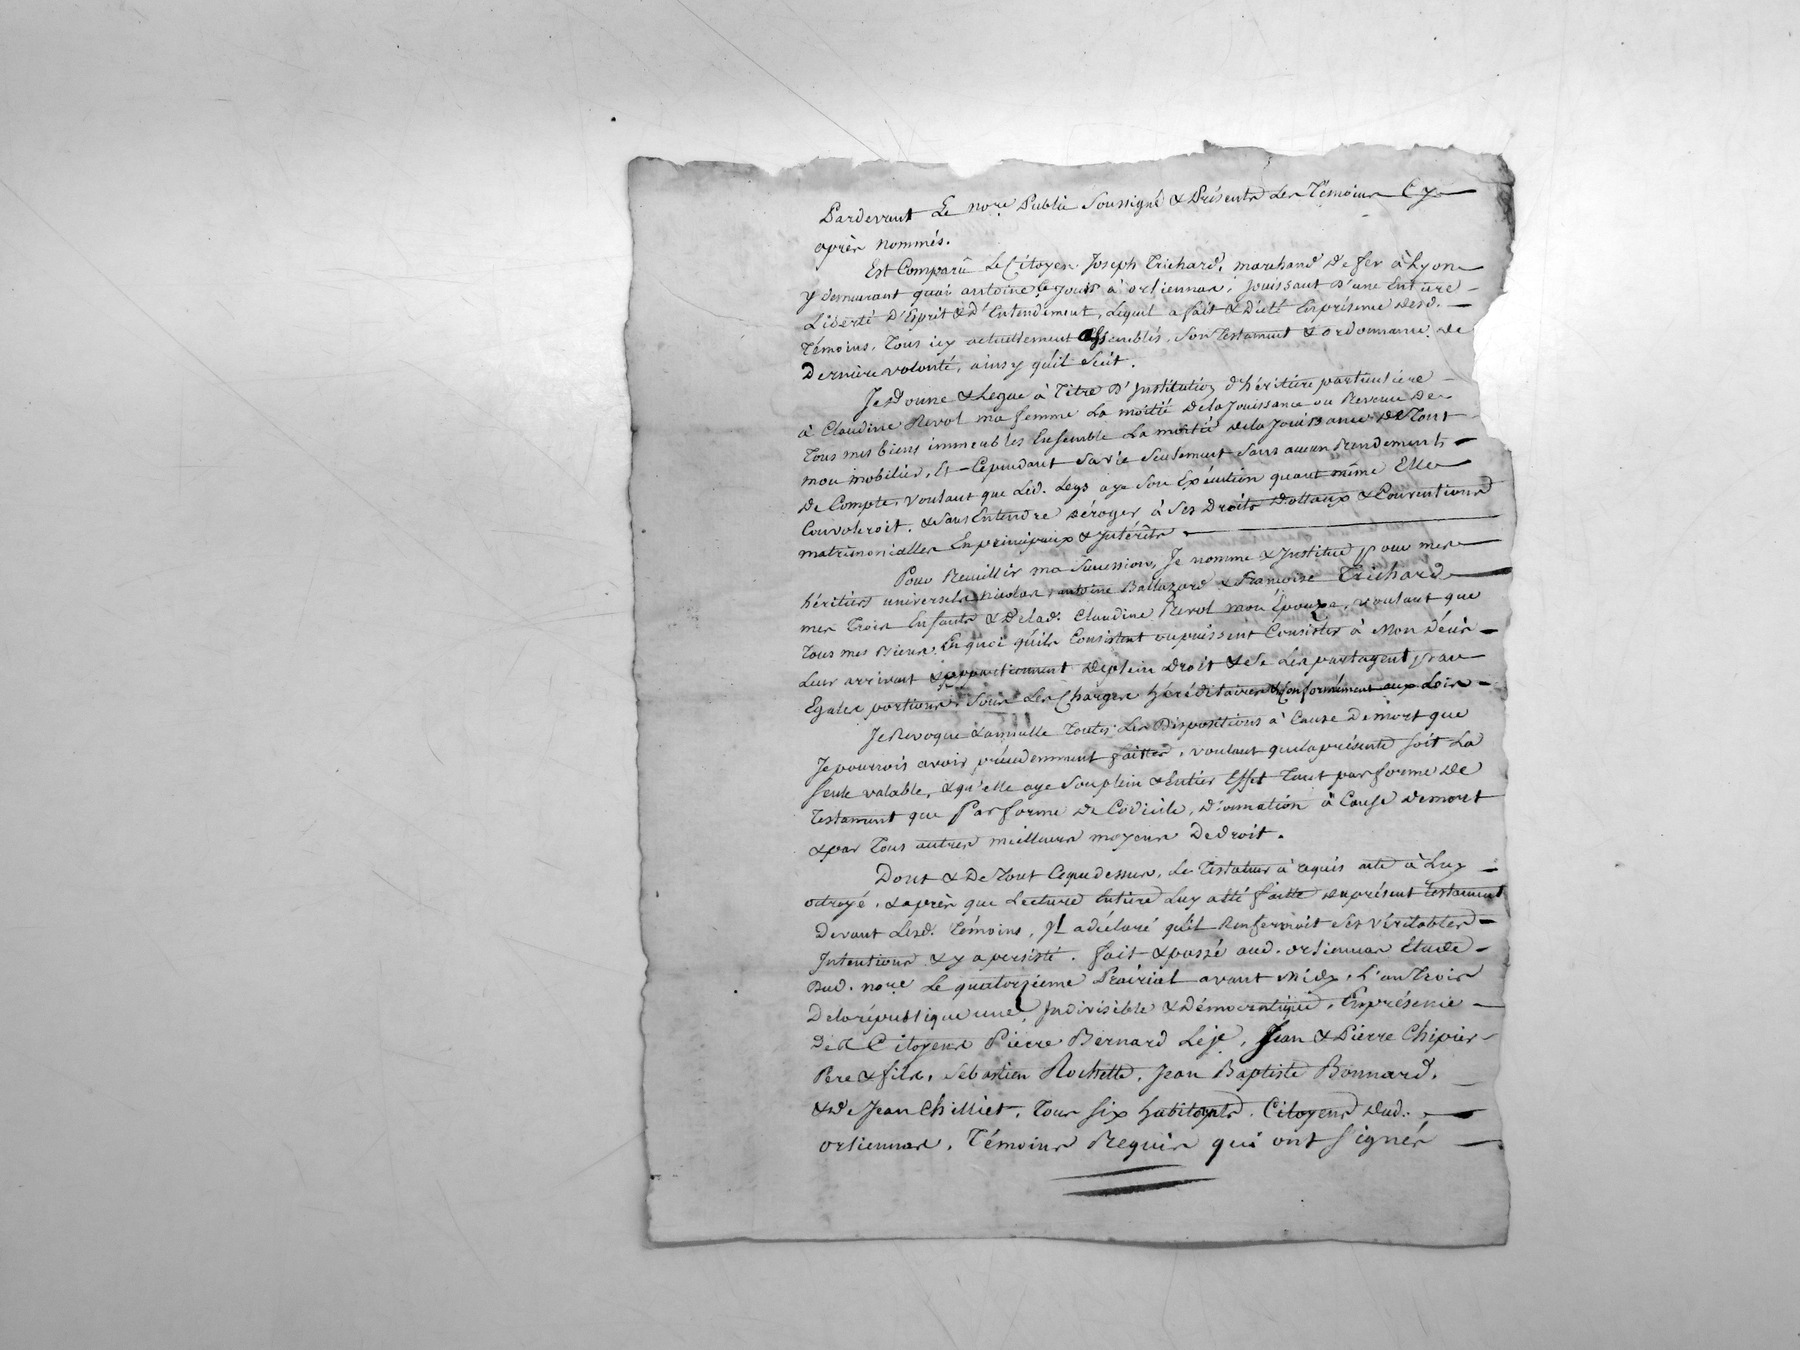 Pardevant Le nore Public Soussigné & Présents Les Témoins Cy
après nommés.
Est Comparû Le Citoyen Joseph Trichard, marchand de fer à Lyon
y demeurant quai antoine, ce jour à orliennas, jouissant d'une Entiere
Liberté d'Esprit & d'Entendement, Lequel a fait & dicté En présence desd.
Témoins, Tous icy actuellement assemblés, Son Testament & ordonnance de
Derniere volonté, ainsy qu'il Suit.
Je Donne & Legue à Titre d'Institution d'héritiere particuliere
à Claudine Revol ma femme La moitié de la Jouissance ou Revenu De
Tous mes biens immeubles Ensemble La moitié de la Jouissance de Tout
mou mobilier, Et Cependant Sa vie Seulement Sans aucun Rendement
De Compte, voulant que Led. Legs aye Son Exécution quant même Elle
Convoleroit, & Sans Entendre Déroger à Ses Droits Dottaux & Conventions
matrimonialles En principaux & Intérêts
Pour Recuillir ma Succession, Je nomme & Institue pour mes
héritiers universels Nicolas, antoine Baltazard & Françoise Trichard
mes Trois Enfants & De Lad. Claudine Revol mon Epouze, voulant que
Tous mes Biens En quoi qu'ils Consistent ou puissent Consister à Mon Décès
Leur arrivent & appartiennent de plein Droit & Se Les partagent par
Egales portions, Sous Les Charges héréditaires & Conformément aux Loix
Je Revoque & annulle Toutes Les Dispositions à Cause de mort que
Je pourrois avoir précédemment faittes, voulant que la présente soit La
seule valable, & qu'elle aye Son plein & Entier Effet Tant par forme de
Testament que Par forme de Codicile, Donnation à Cause de mort
& par Tous autres meilleurs moyens de droit.
Dont & De Tout Ce que dessus, Le Testateur à requis acte à Luy
octroyé, & après que Lecture Entiere Luy a été faitte du présent Testament
Devant Lesd. Témoins, Il a déclaré qu'il Renfermoit Ses véritables
Intentions & y a persisté. fait & passé aud. orliennas Etude
Dud. nore Le quatorzieme Prairial avant Midy, L'an Trois
De la république une, Indivisible & Démocratique, En présence
De Citoyens Pierre Bernard Leje, Jean & Pierre Chipier
Pere & fils, Sébastien Rochette, Jean Baptiste Bonnard,
& De Jean Chilliet, Tous six habitants, Citoyens Dud.
orliennas, Témoins Requis qui ont signés